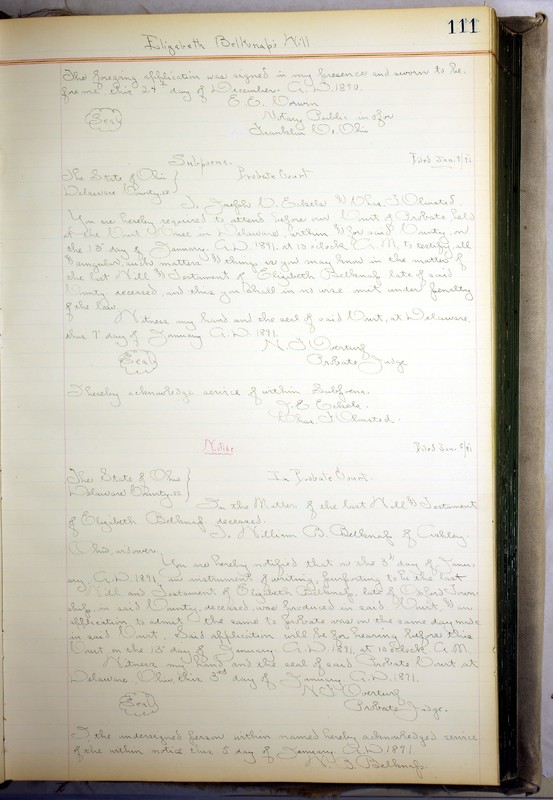 111
Elizabeth Belknap's Will
The foregoing application was signed in my presence and sworn to be-
fore me this 24th day of December A.D. 1890.
E. E.
Seal
Notary Public in & for
Franklin Co, Ohio
Subpoena.
Filed Jan. 9/91
The State of Ohio } Probate Court
Delaware County, ss }
To, Joseph E. Eckels & Chas. F. Olmsted.
You are hereby required to attend before our Court of Probate held
at the Court House in Delaware, within & for said County, on
the 13" day of January A.D. 1891. at 10 o'clock A.M. to testify all
& singular such matters & things as you may know in the matter of
the last Will & Testament of Elizabeth Belknap late of said
County deceased, and this you shall in no wise omit under penalty
of the law.
Witness my hand and the seal of said Court, at Delaware
this 7" day of January A.D. 1891.
N. F. Overturf
Seal
Probate Judge
I hereby acknowledge service of within Subpoena.
J. E. Eckels.
Chas. F. Olmsted.
Notice
Filed Jan.
The State of Ohio } In Probate Court.
Delaware County, ss }
In the Matter of the last Will & Testament
of Elizabeth Belknap, deceased.
To William B. Belknap of Ashley
Ohio,
You are hereby notified that on the 3d day of Janu-
ary, A.D. 1891 an instrument of writing, purporting to be the last
Will and Testament of Elizabeth Belknap, late of Oxford Town-
ship, in said County, deceased, was produced in said Court, & an
application to admit the same to probate was on the same day made
in said Court. Said application will be for hearing before this
Court on the 13" day of January A.D. 1891, at 10 o'clock A.M.
Witness my hand and the seal of said Probate Court at
Delaware, Ohio, this 3rd day of January A.D. 1891.
N. F. Overturf
Seal
Probate Judge.
I the undersigned person within named hereby acknowledged service
of the within notice this 5 day of January A.D. 1891
Belknap.